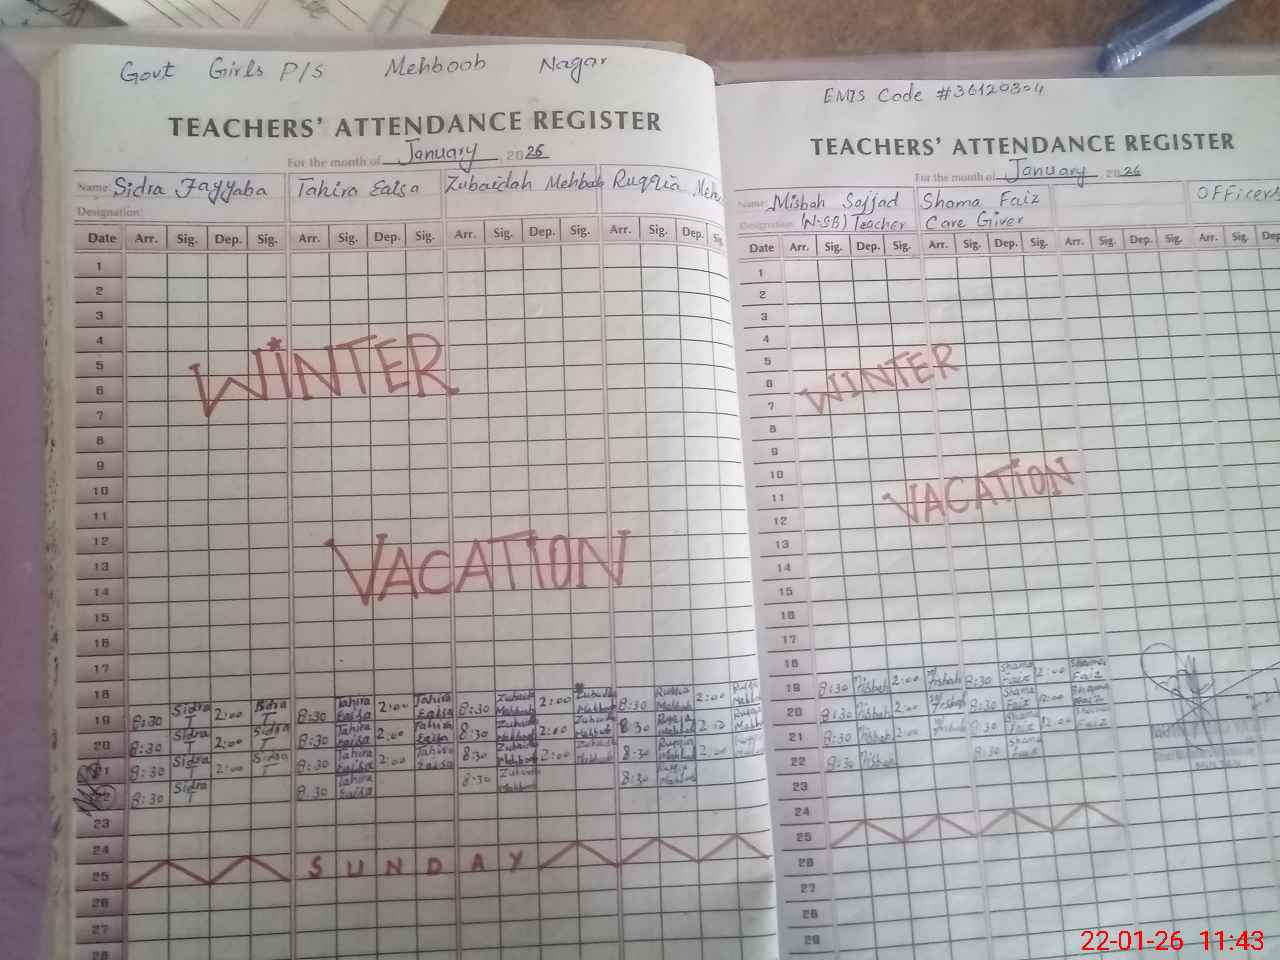 Govt Girls P/S Mehboob Nagar
TEACHERS' ATTENDANCE REGISTER
For the month of January, 2026
Name: Sidra Tayyaba Tahira Eatsa Zubaidah Mehbab Ruqqia Meh
Designation:
Date Arr. Sig. Dep. Sig. Arr. Sig. Dep. Sig. Arr. Sig. Dep. Sig. Arr. Sig. Dep. Sig.
1
2
3
4
5
6
7
8
9
10
11
12
13
14
15
16
17
18
WINTER
VACATION
19 8:30 Sidra T 2:00 Sidra T 8:30 Tahira Eatsa 2:00 Tahira Eatsa 8:30 Zubaida Mehboob 2:00 Zubaida Mehboob 8:30 Ruqqia Mehboob 2:00
20 8:30 Sidra T 2:00 Sidra T 8:30 Tahira Eatsa 2:00 Tahira Eatsa 8:30 Zubaida Mehboob 2:00 Zubaida Mehboob 8:30 Ruqqia Mehboob 2:00
21 8:30 Sidra T 2:00 Sidra T 8:30 Tahira Eatsa 2:00 Tahira Eatsa 8:30 Zubaida Mehboob 2:00 Zubaida Mehboob 8:30 Ruqqia Mehboob 2:00
22 8:30 Sidra T 8:30 Tahira Eatsa 8:30 Zubaida Mehboob 8:30 Ruqqia Mehboob
23
24
25 SUNDAY
26
27
28
EMIS Code #36120304
TEACHERS' ATTENDANCE REGISTER
For the month of January 2026
Name: Misbah Sajjad Shama Faiz Officers
Designation: (N-SB) Teacher Care Giver
Date Arr. Sig. Dep. Sig. Arr. Sig. Dep. Sig. Arr. Sig. Dep. Sig. Arr. Sig. Dep
1
2
3
4
5
6
7
8
9
10
11
12
13
14
15
16
17
18
WINTER
VACATION
19 8:30 Misbah 2:00 Misbah 8:30 Shama Faiz 2:00 Shama Faiz
20 8:30 Misbah 2:00 Misbah 8:30 Shama Faiz 2:00 Shama Faiz
21 8:30 Misbah 2:00 Misbah 8:30 Shama Faiz 2:00 Shama Faiz
22 8:30 Misbah 8:30 Shama Faiz
23
24
25
26
27
28
29
22-01-26 11:43